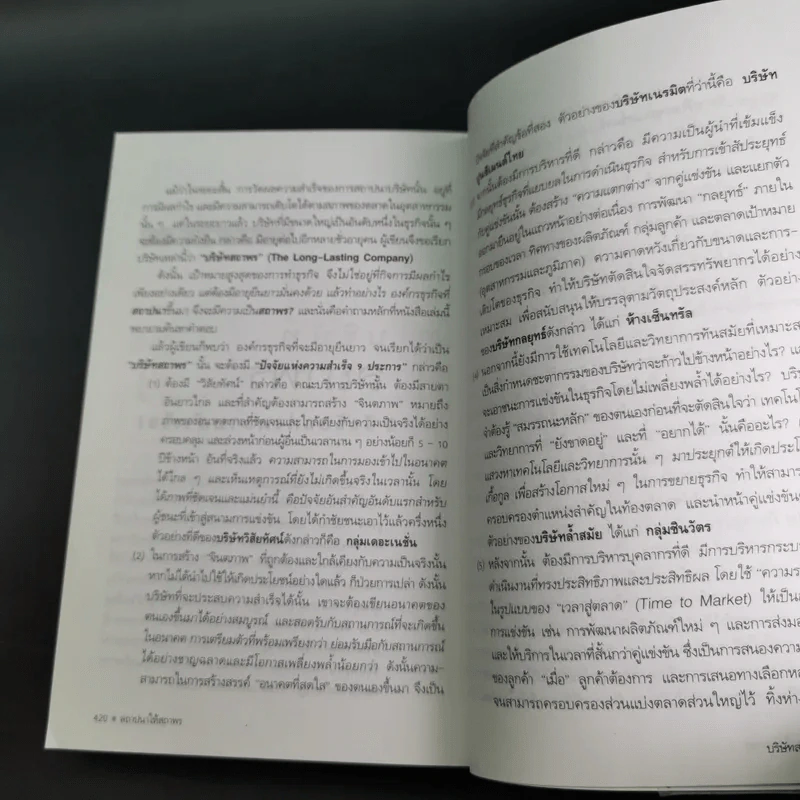 แม้ว่าในระยะสั้น การวัดผลความสำเร็จของการสถาปนาบริษัทนั้น อยู่ที่
การมีผลกำไร และมีความสามารถเติบโตได้ตามสภาพของตลาดในอุตสาหกรรม
นั้น ๆ แต่ในระยะยาวแล้ว บริษัทที่มีขนาดใหญ่เป็นอันดับหนึ่งในธุรกิจนั้น ๆ
จะต้องมีความยั่งยืน กล่าวคือ มีอายุต่อไปอีกหลายชั่วอายุคน ผู้เขียนจึงขอเรียก
บริษัทเหล่านี้ว่า "บริษัทสถาพร" (The Long-Lasting Company)
ดังนั้น เป้าหมายสูงสุดของการทำธุรกิจ จึงไม่ใช่อยู่ที่กิจการมีผลกำไร
เพียงอย่างเดียว แต่ต้องมีอายุยืนยาวมั่นคงด้วย แล้วทำอย่างไร องค์กรธุรกิจที่
สถาปนาขึ้นมา จึงจะมีความเป็นสถาพร? และนั่นคือคำถามหลักที่หนังสือเล่มนี้
พยายามค้นหาคำตอบ
แล้วผู้เขียนก็พบว่า องค์กรธุรกิจที่จะมีอายุยืนยาว จนเรียกได้ว่าเป็น
"บริษัทสถาพร" นั้น จะต้องมี "ปัจจัยแห่งความสำเร็จ 9 ประการ" กล่าวคือ
(1) ต้องมี "วิสัยทัศน์" กล่าวคือ คณะบริหารบริษัทนั้น ต้องมีสายตา
อันยาวไกล และที่สำคัญต้องสามารถสร้าง "จินตภาพ" หมายถึง
ภาพของอนาคตกาลที่ชัดเจนและใกล้เคียงกับความเป็นจริงได้อย่าง
ครอบคลุม และล่วงหน้าก่อนผู้อื่นเป็นเวลานาน ๆ อย่างน้อยก็ 5 - 10
ปีข้างหน้า อันที่จริงแล้ว ความสามารถในการมองเข้าไปในอนาคต
ได้ไกล ๆ และเห็นเหตุการณ์ที่ยังไม่เกิดขึ้นจริงในเวลานั้น โดย
ได้ภาพที่ชัดเจนและแม่นยำนี้ คือปัจจัยอันสำคัญอันดับแรกสำหรับ
ผู้ชนะที่เข้าสู่สนามการแข่งขัน โดยได้กำชัยชนะเอาไว้แล้วครึ่งหนึ่ง
ตัวอย่างที่ดีของบริษัทวิสัยทัศน์ดังกล่าวก็คือ กลุ่มเดอะเนชั่น
(2) ในการสร้าง "จินตภาพ" ที่ถูกต้องและใกล้เคียงกับความเป็นจริงนั้น
หากไม่ได้นำไปใช้ให้เกิดประโยชน์อย่างใดแล้ว ก็ป่วยการเปล่า ดังนั้น
บริษัทที่จะประสบความสำเร็จได้นั้น เขาจะต้องเขียนอนาคตของ
ตนเองขึ้นมาได้อย่างสมบูรณ์ และสอดรับกับสถานการณ์ที่จะเกิดขึ้น
ในอนาคต การเตรียมตัวที่พร้อมเพรียงกว่า ย่อมรับมือกับสถานการณ์
ได้อย่างชาญฉลาดและมีโอกาสเพลี่ยงพล้ำน้อยกว่า ดังนั้นความ-
สามารถในการสร้างสรรค์ "อนาคตที่สดใส" ของตนเองขึ้นมา จึงเป็น
420 # สถาปนาให้สถาพร
ปัจจัยที่สำคัญข้อที่สอง ตัวอย่างของบริษัทเนรมิตที่ว่านี้คือ บริษัท
ปูนซิเมนต์ไทย
จากนั้นต้องมีการบริหารที่ดี กล่าวคือ มีความเป็นผู้นำที่เข้มแข็ง
มีกลยุทธ์ธุรกิจที่แยบยลในการดำเนินธุรกิจ สำหรับการเข้าสัประยุทธ์
กับคู่แข่งขันนั้น ต้องสร้าง "ความแตกต่าง" จากคู่แข่งขัน และแยกตัว
ออกมายืนอยู่ในแถวหน้าอย่างต่อเนื่อง การพัฒนา "กลยุทธ์" ภายใน
กรอบของเวลา ทิศทางของผลิตภัณฑ์ กลุ่มลูกค้า และตลาดเป้าหมาย
(อุตสาหกรรมและภูมิภาค) ความคาดหวังเกี่ยวกับขนาดและการ-
เติบโตของธุรกิจ ทำให้บริษัทตัดสินใจจัดสรรทรัพยากรได้อย่าง
เหมาะสม เพื่อสนับสนุนให้บรรลุตามวัตถุประสงค์หลัก ตัวอย่าง
ของบริษัทกลยุทธ์ดังกล่าว ได้แก่ ห้างเซ็นทรัล
นอกจากนี้ยังมีการใช้เทคโนโลยีและวิทยาการทันสมัยที่เหมาะส
เป็นสิ่งกำหนดชะตากรรมของบริษัทว่าจะก้าวไปข้างหน้าอย่างไร? และ
จะเอาชนะการแข่งขันในธุรกิจโดยไม่เพลี่ยงพล้ำได้อย่างไร? บริ
จำต้องรู้ "สมรรถนะหลัก" ของตนเองก่อนที่จะตัดสินใจว่า เทคโนโ
และวิทยาการที่ "ยังขาดอยู่" และที่ "อยากได้" นั้นคืออะไร?
แสวงหาเทคโนโลยีและวิทยาการนั้น ๆ มาประยุกต์ให้เกิดประโ
เกื้อกูล เพื่อสร้างโอกาสใหม่ ๆ ในการขยายธุรกิจ ทำให้สามาร
ครอบครองตำแหน่งสำคัญในท้องตลาด และนำหน้าคู่แข่งขัน
ตัวอย่างของบริษัทล้ำสมัย ได้แก่ กลุ่มชินวัตร
(5) หลังจากนั้น ต้องมีการบริหารบุคลากรที่ดี มีการบริหารกระบ
ดำเนินงานที่ทรงประสิทธิภาพและประสิทธิผล โดยใช้ "ความร
ในรูปแบบของ "เวลาสู่ตลาด" (Time to Market) ให้เป็น
การแข่งขัน เช่น การพัฒนาผลิตภัณฑ์ใหม่ ๆ และการส่งมอ
และให้บริการในเวลาที่สั้นกว่าคู่แข่งขัน ซึ่งเป็นการสนองความ
ของลูกค้า "เมื่อ" ลูกค้าต้องการ และการเสนอทางเลือกหล
จนสามารถครอบครองส่วนแบ่งตลาดส่วนใหญ่ไว้ ทิ้งห่าง
บริษัทส